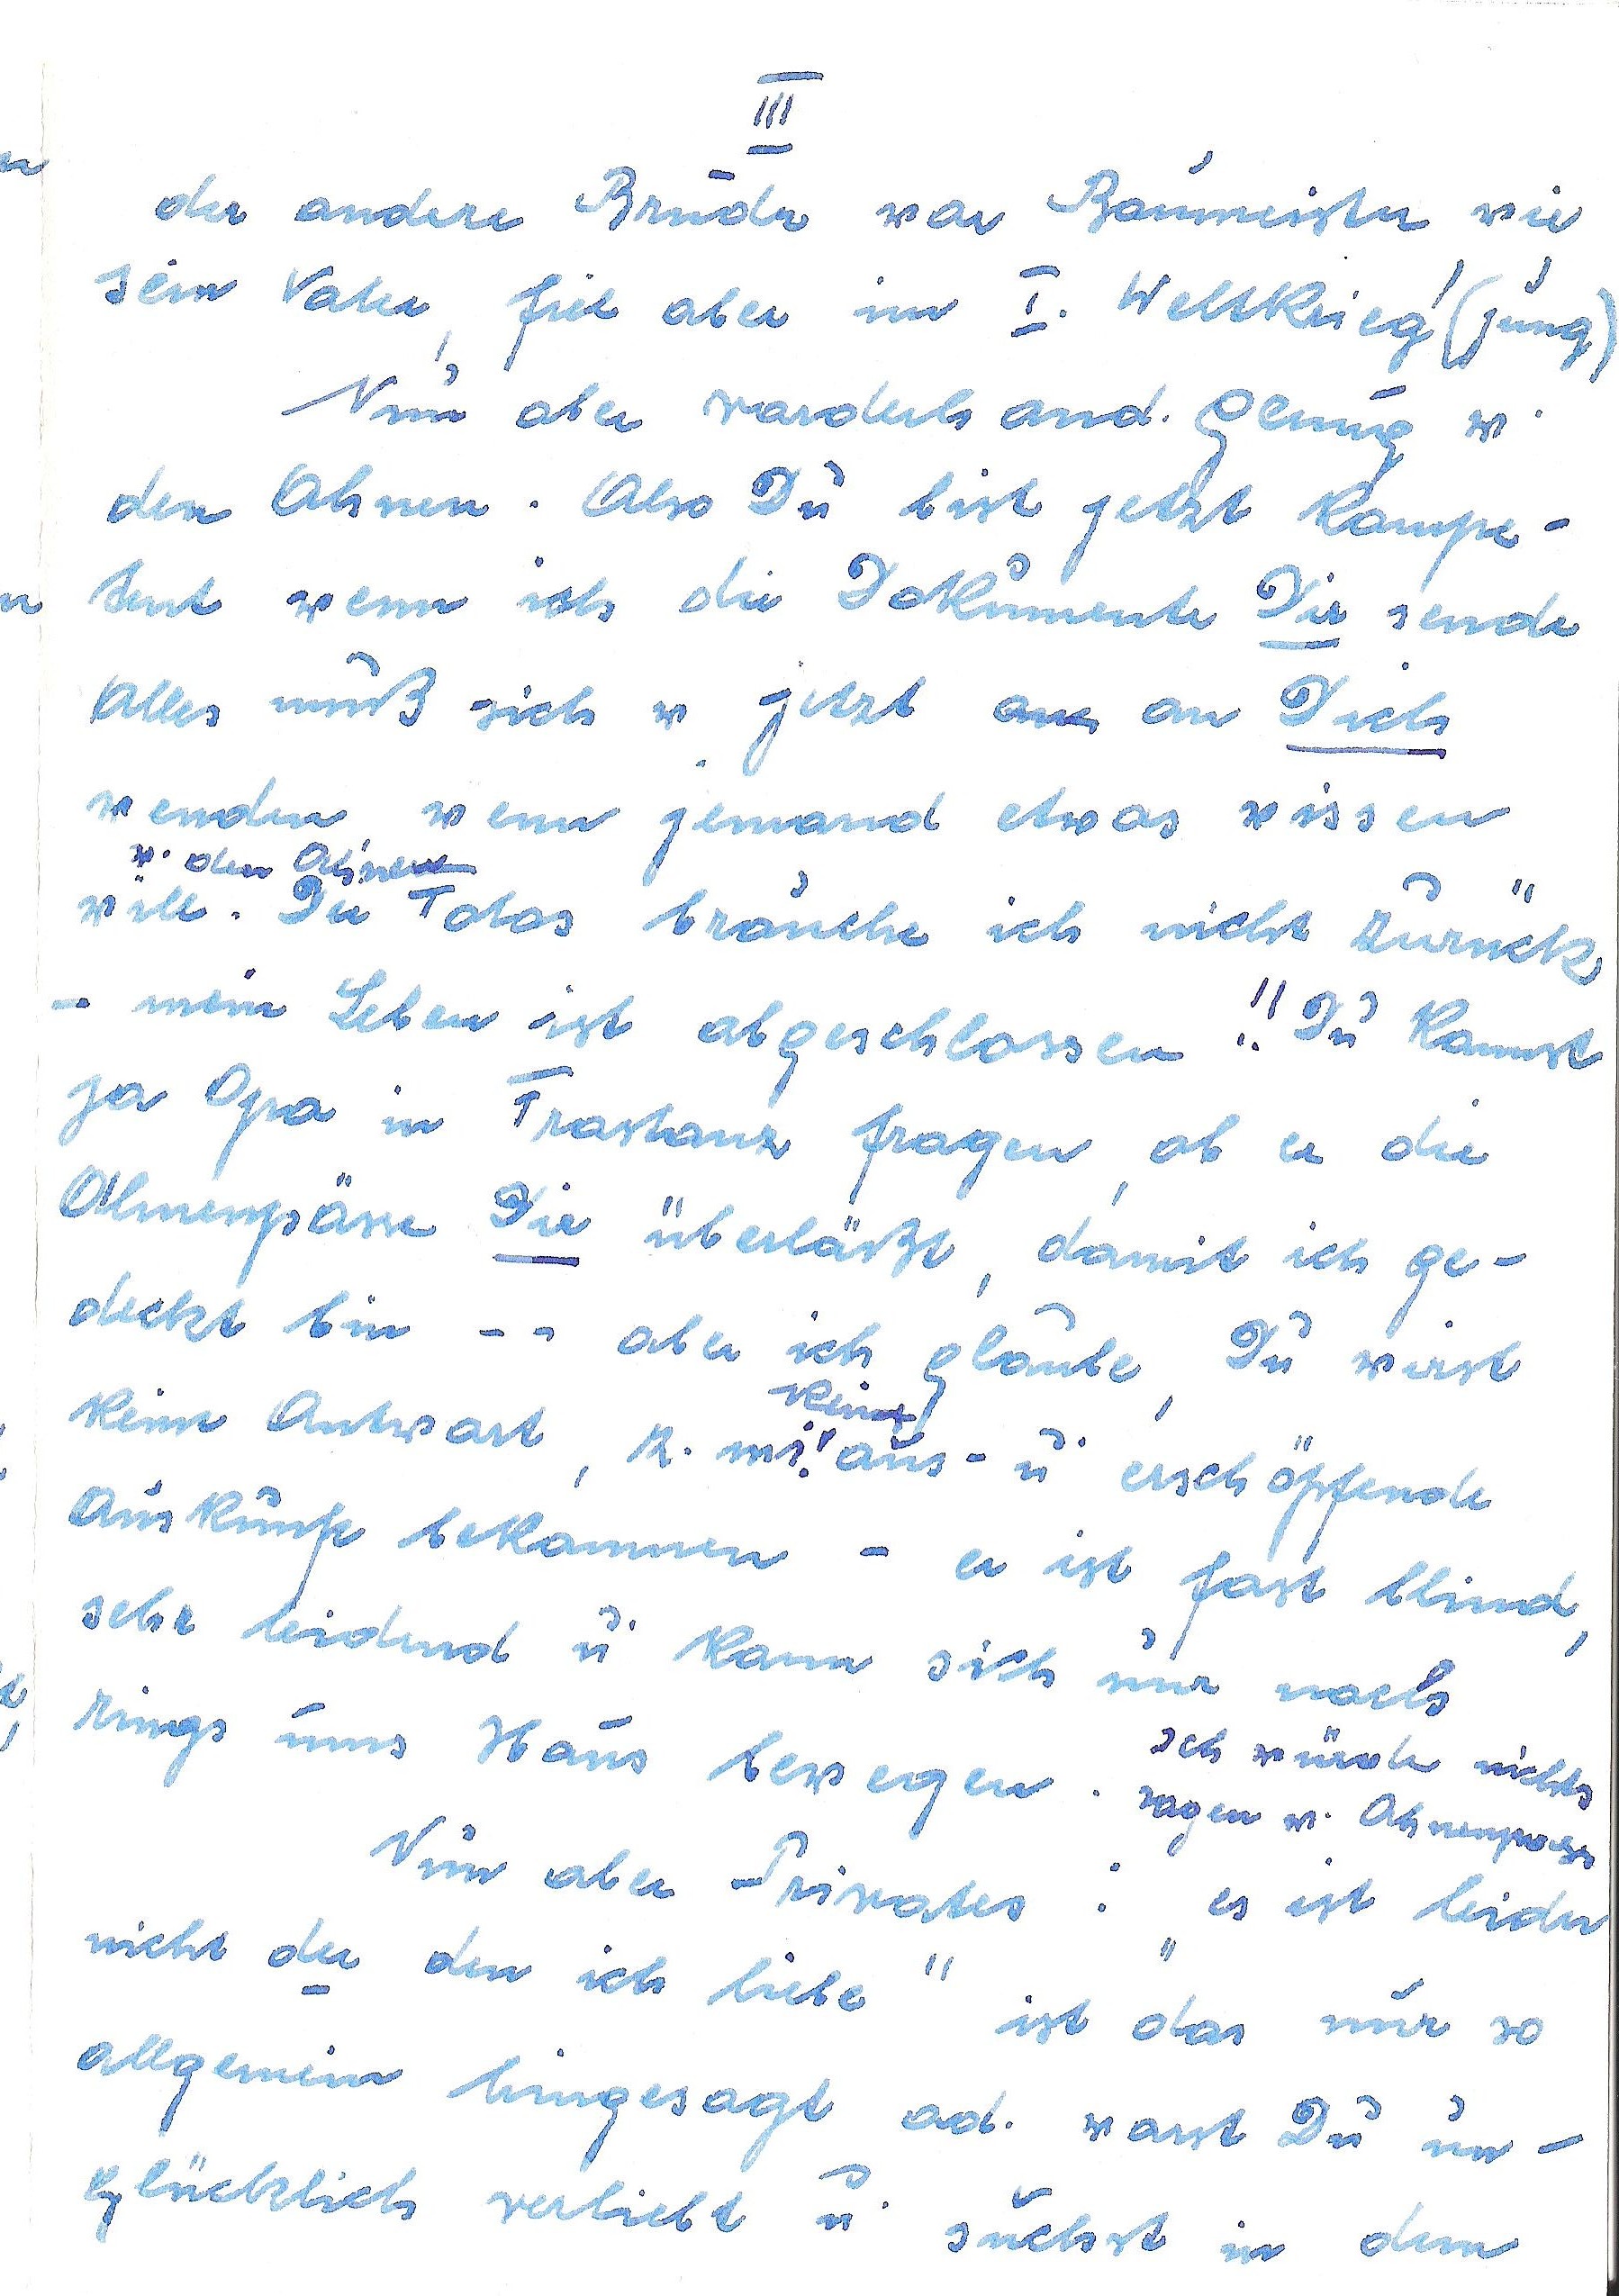 III
der andere Bruder war Baumeister wie
sein Vater, fiel aber im I. Weltkrieg! (jung)
Nun aber vorderhand. genug v.
den Ahnen. Also Du bist jetzt kompe-
tent wenn ich die Dokumente Dir sende
Alles muß sich v. jetzt an Dich
wenden, wenn jemand etwas wissen
v. den Ahnen
will. Die Fotos brauche ich nicht zurück
- mein Leben ist abgeschlossen!! Du kannst
ja Opa in Frastanz fragen, ob er die
Ahnenpässe Dir überläßt, damit ich ge-
deckt bin -- aber ich glaube, Du wirst
keine
keine Antwort, z. mi! aus- u. erschöpfende
Auskunft bekommen - er ist fast blind,
sehr leidend u. kann sich nur noch
rings ums Haus bewegen.
Ich würde nichts
sagen v. Ahnenpass
Nun aber Privates: "es ist leider
nicht der den ich liebe" ist das nur so
allgemein hingesagt od. warst Du un-
glücklich verliebt u. suchst in dem